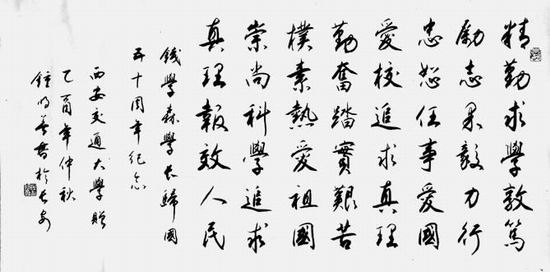 精勤求學敦篤
勵志果毅力行
忠恕任事愛國
愛校追求真理
勤奮踏實艱苦
樸素熱愛祖國
崇尚科學追求
真理報效人民
錢學森學長歸國
五十周年紀念
西安交通大學贈
乙酉年仲秋
鍾明善書於長安